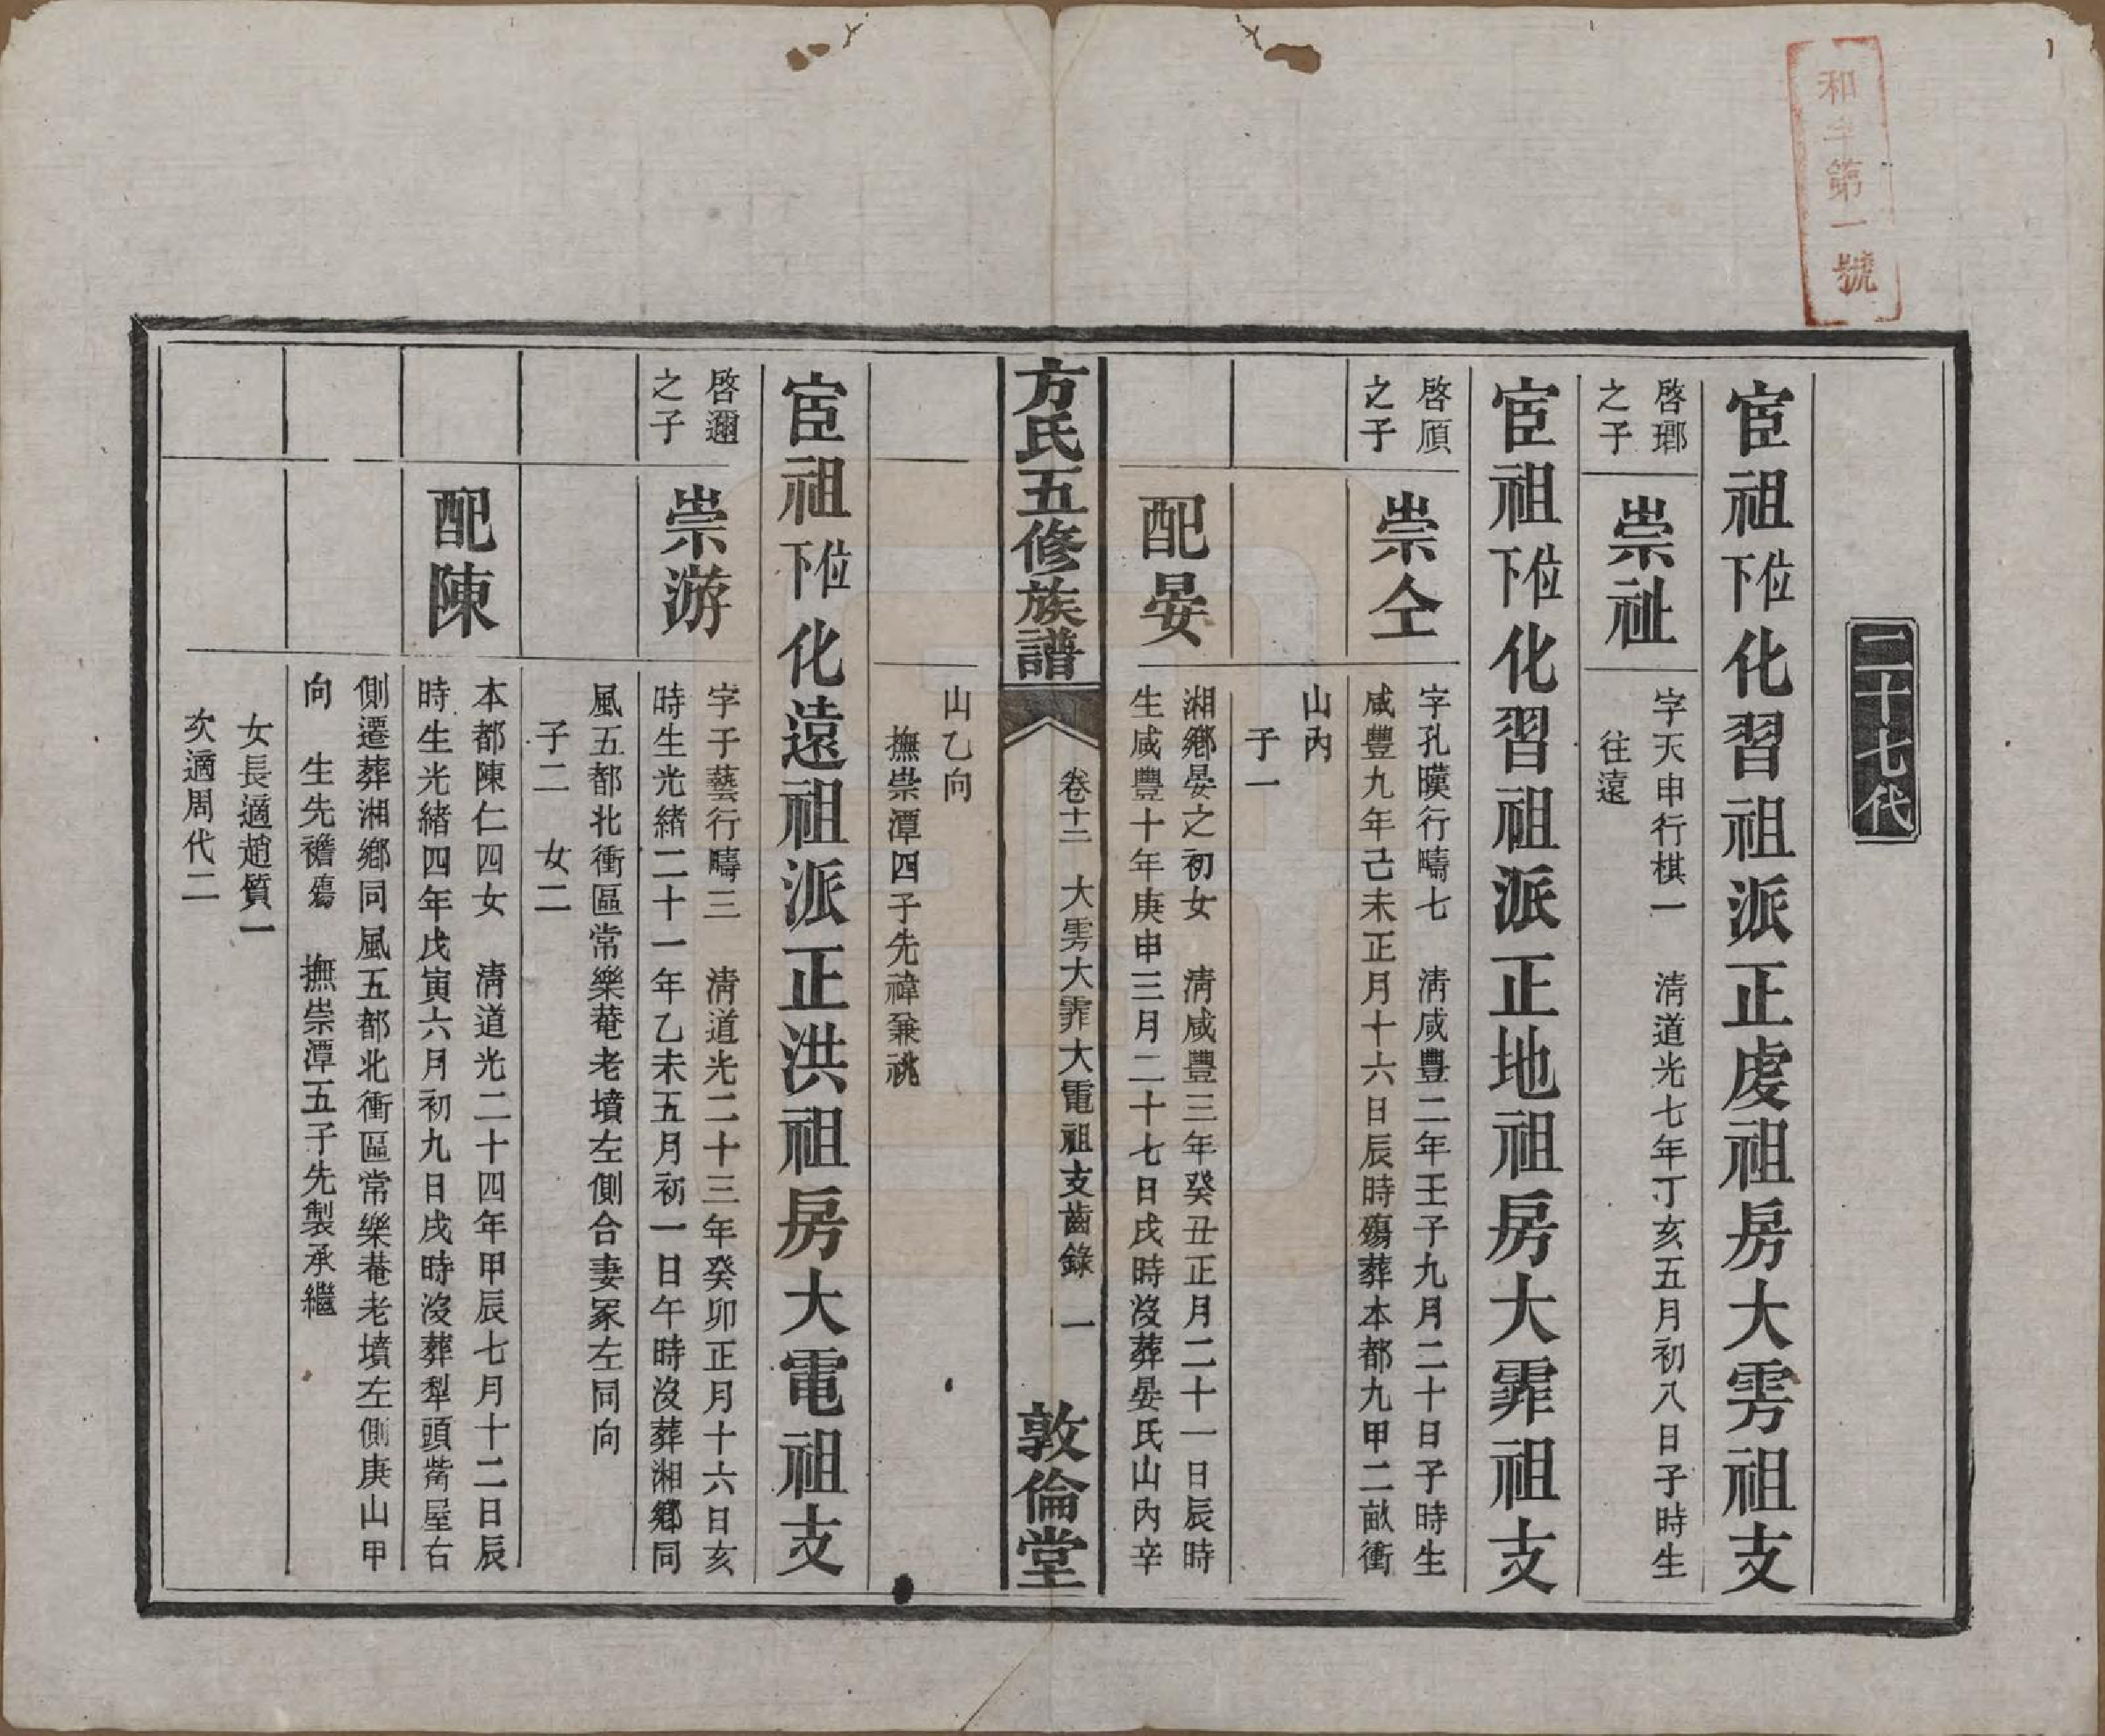 和字第一號
二十七代
宦祖位下化習祖派正虔祖房大雱祖支
啓瑯之子
崇祉
字天申行棋一　淸道光七年丁亥五月初八日子時生
往遠
宦祖位下化習祖派正地祖房大霏祖支
啓順之子
崇仝
字孔暵行疇七　淸咸豐二年壬子九月二十日子時生
咸豐九年己未正月十六日辰時殤葬本都九甲二畝衝
山內
子一
配晏
湘鄕晏之初女　淸咸豐三年癸丑正月二十一日辰時
生咸豐十年庚申三月二十七日戌時沒葬晏氏山內辛
山乙向
撫崇潭四子先禕兼祧
方氏五修族譜
卷十二　大雱大霏大電祖支齒錄　一
敦倫堂
宦祖位下化遠祖派正洪祖房大電祖支
啓邇之子
崇游
字于藝行疇三　淸道光二十三年癸卯正月十六日亥
時生光緖二十一年乙未五月初一日午時沒葬湘鄕同
風五都北衝區常樂菴老墳左側合妻冢左同向
子二　女二
配陳
本都陳仁四女　淸道光二十四年甲辰七月十二日辰
時生光緖四年戊寅六月初九日戌時沒葬犁頭觜屋右
側遷葬湘鄕同風五都北衝區常樂菴老墳左側庚山甲
向　生先襜殤　撫崇潭五子先製承繼
女長適趙質一
次適周代二